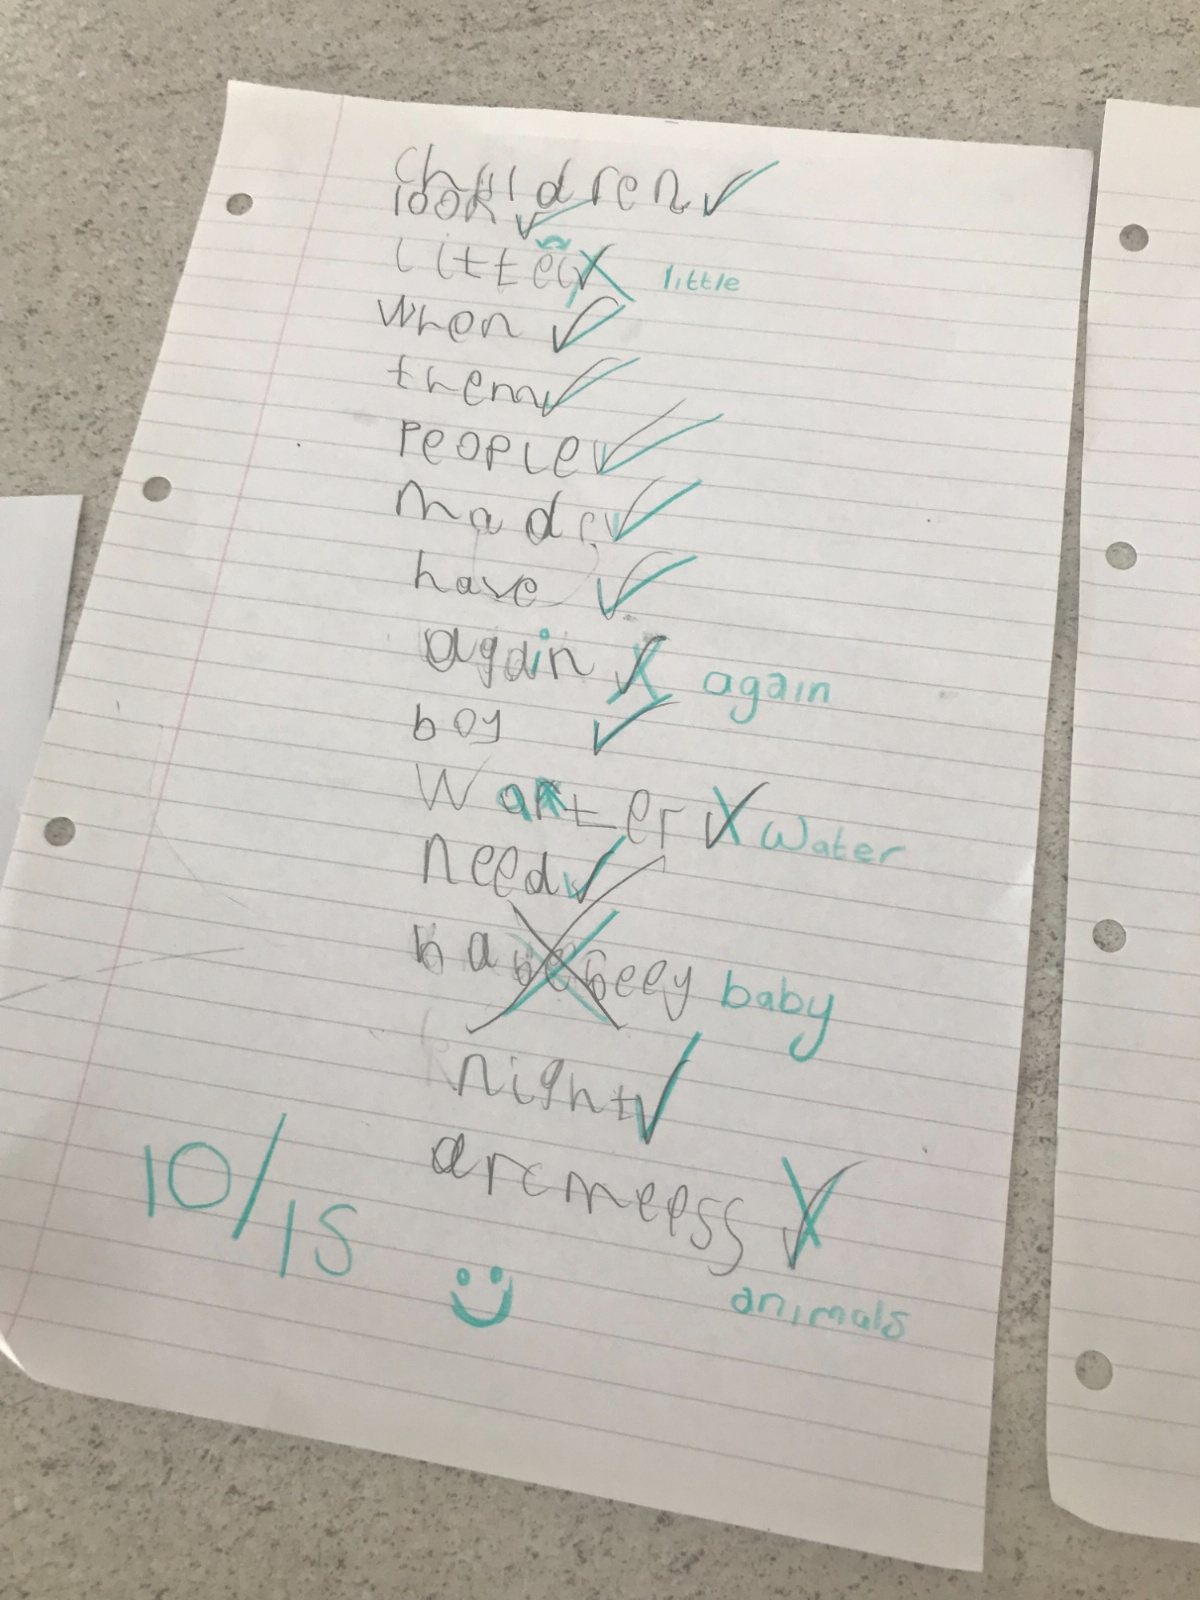 children ✓
look ✓
littel X little
when ✓
them ✓
people ✓
made ✓
have ✓
again X again
boy ✓
water X water
need ✓
baby
night ✓
arcmeepss X
animals
10/15